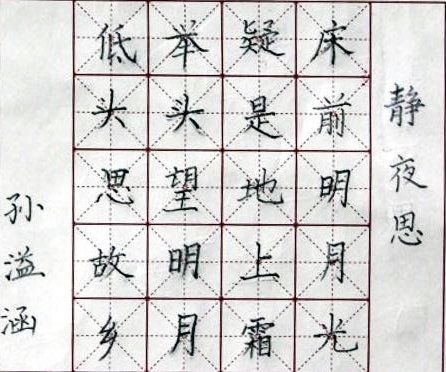 静夜思
床前明月光
疑是地上霜
举头望明月
低头思故乡
孙溢涵